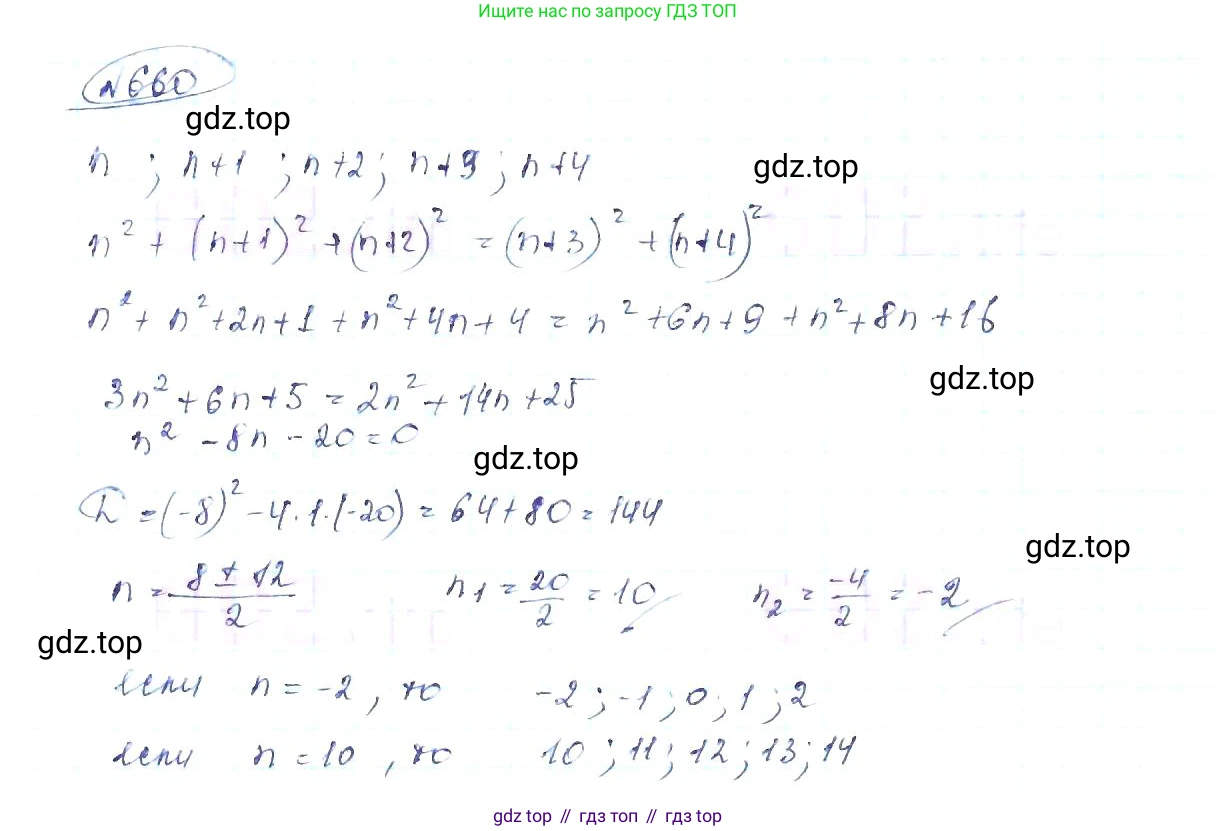 Ищите нас по запросу ГДЗ ТОП
№660
gdz.top
n ; n+1 ; n+2 ; n+3 ; n+4
gdz.top
n² + (n+1)² + (n+2)² = (n+3)² + (n+4)²
n² + n² + 2n + 1 + n² + 4n + 4 = n² + 6n + 9 + n² + 8n + 16
gdz.top
3n² + 6n + 5 = 2n² + 14n + 25
n² - 8n - 20 = 0
gdz.top
D = (-8)² - 4·1·(-20) = 64 + 80 = 144
gdz.top
n = (8 ± 12)/2 n₁ = 20/2 = 10 n₂ = -4/2 = -2
gdz.top
если n = -2, то -2 ; -1 ; 0 ; 1 ; 2
если n = 10, то 10 ; 11 ; 12 ; 13 ; 14
gdz top // гдз топ // gdz.top